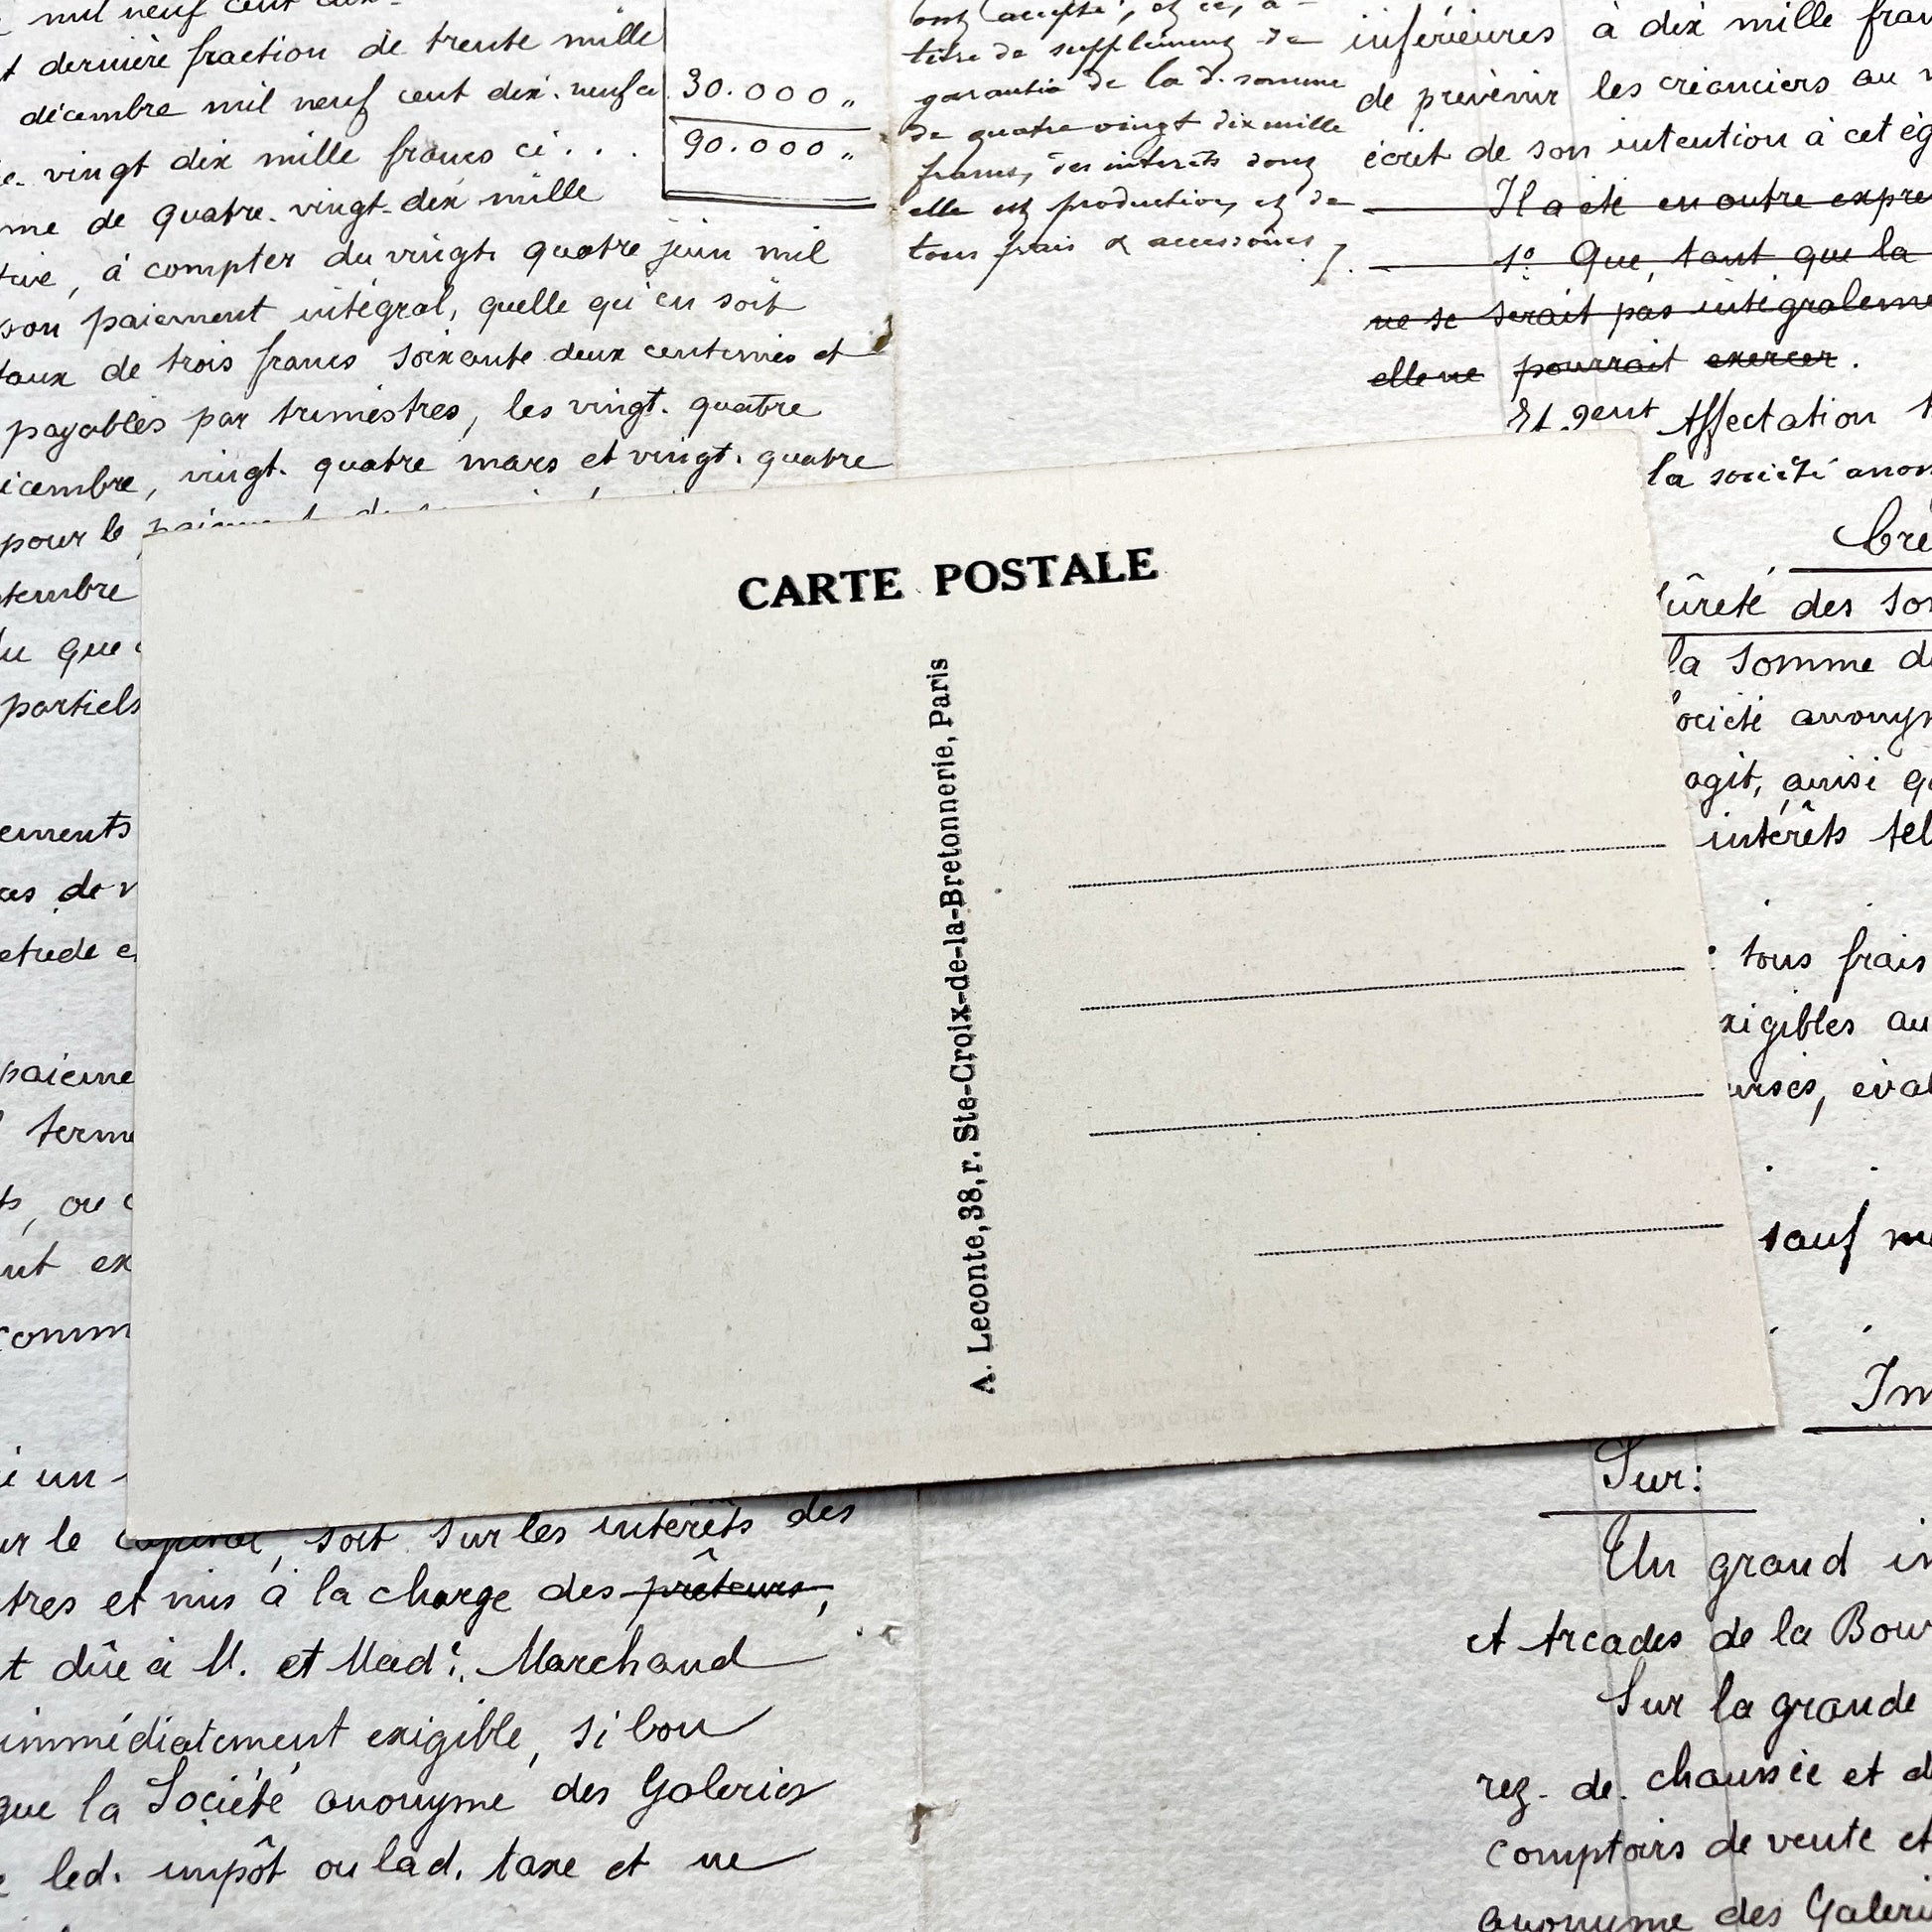 mil neuf cent
dernière fraction de trente mille
décembre mil neuf cent dix. neuf ci
30.000 "
vingt dix mille francs ci . . .
90.000 "
me de quatre. vingt. dix mille
à compter du vingt. quatre juin mil
son paiement intégral, quelle qu'en soit
taux de trois francs soixante deux centimes et
payables par trimestres, les vingt. quatre
icembre, vingt. quatre mars et vingt. quatre
pour le
tembre
que
partiels
ements
de
etude
paieme
terme
ou
ex
comm
un
le soit sur les intérêts des
tres et mis à la charge des prêteurs,
dûe à M. et Mad. Marchand
immédiatement exigible, si bon
que la Société anonyme des Galeries
led. impôt ou lad. taxe et ne
ont accepté, et ce, à
titre de supplément de
garantie de la d. somme
de quatre vingt dix mille
francs, des intérêts dont
elle est productive, et de
tous frais & accessoires
inférieures à dix mille fran
de prévenir les créanciers au
écrit de son intention à cet ég
Il a été en outre expre
1º Que, tant que la
ne se serait pas intégraleme
elle ne pourrait exercer.
Affectation
la société anon
ûreté des som
la somme de
ociété anonym
agit, ainsi
intérêts tel
tous frais
xigibles au
urses, éval
sauf
Im
Sur:
Un grand im
et Arcades de la Bour
Sur la grande
rez. de. chaussée et
comptoirs de vente et
anonyme des Galeri
CARTE POSTALE
A. Leconte, 38, r. Ste-Croix-de-la-Bretonnerie, Paris